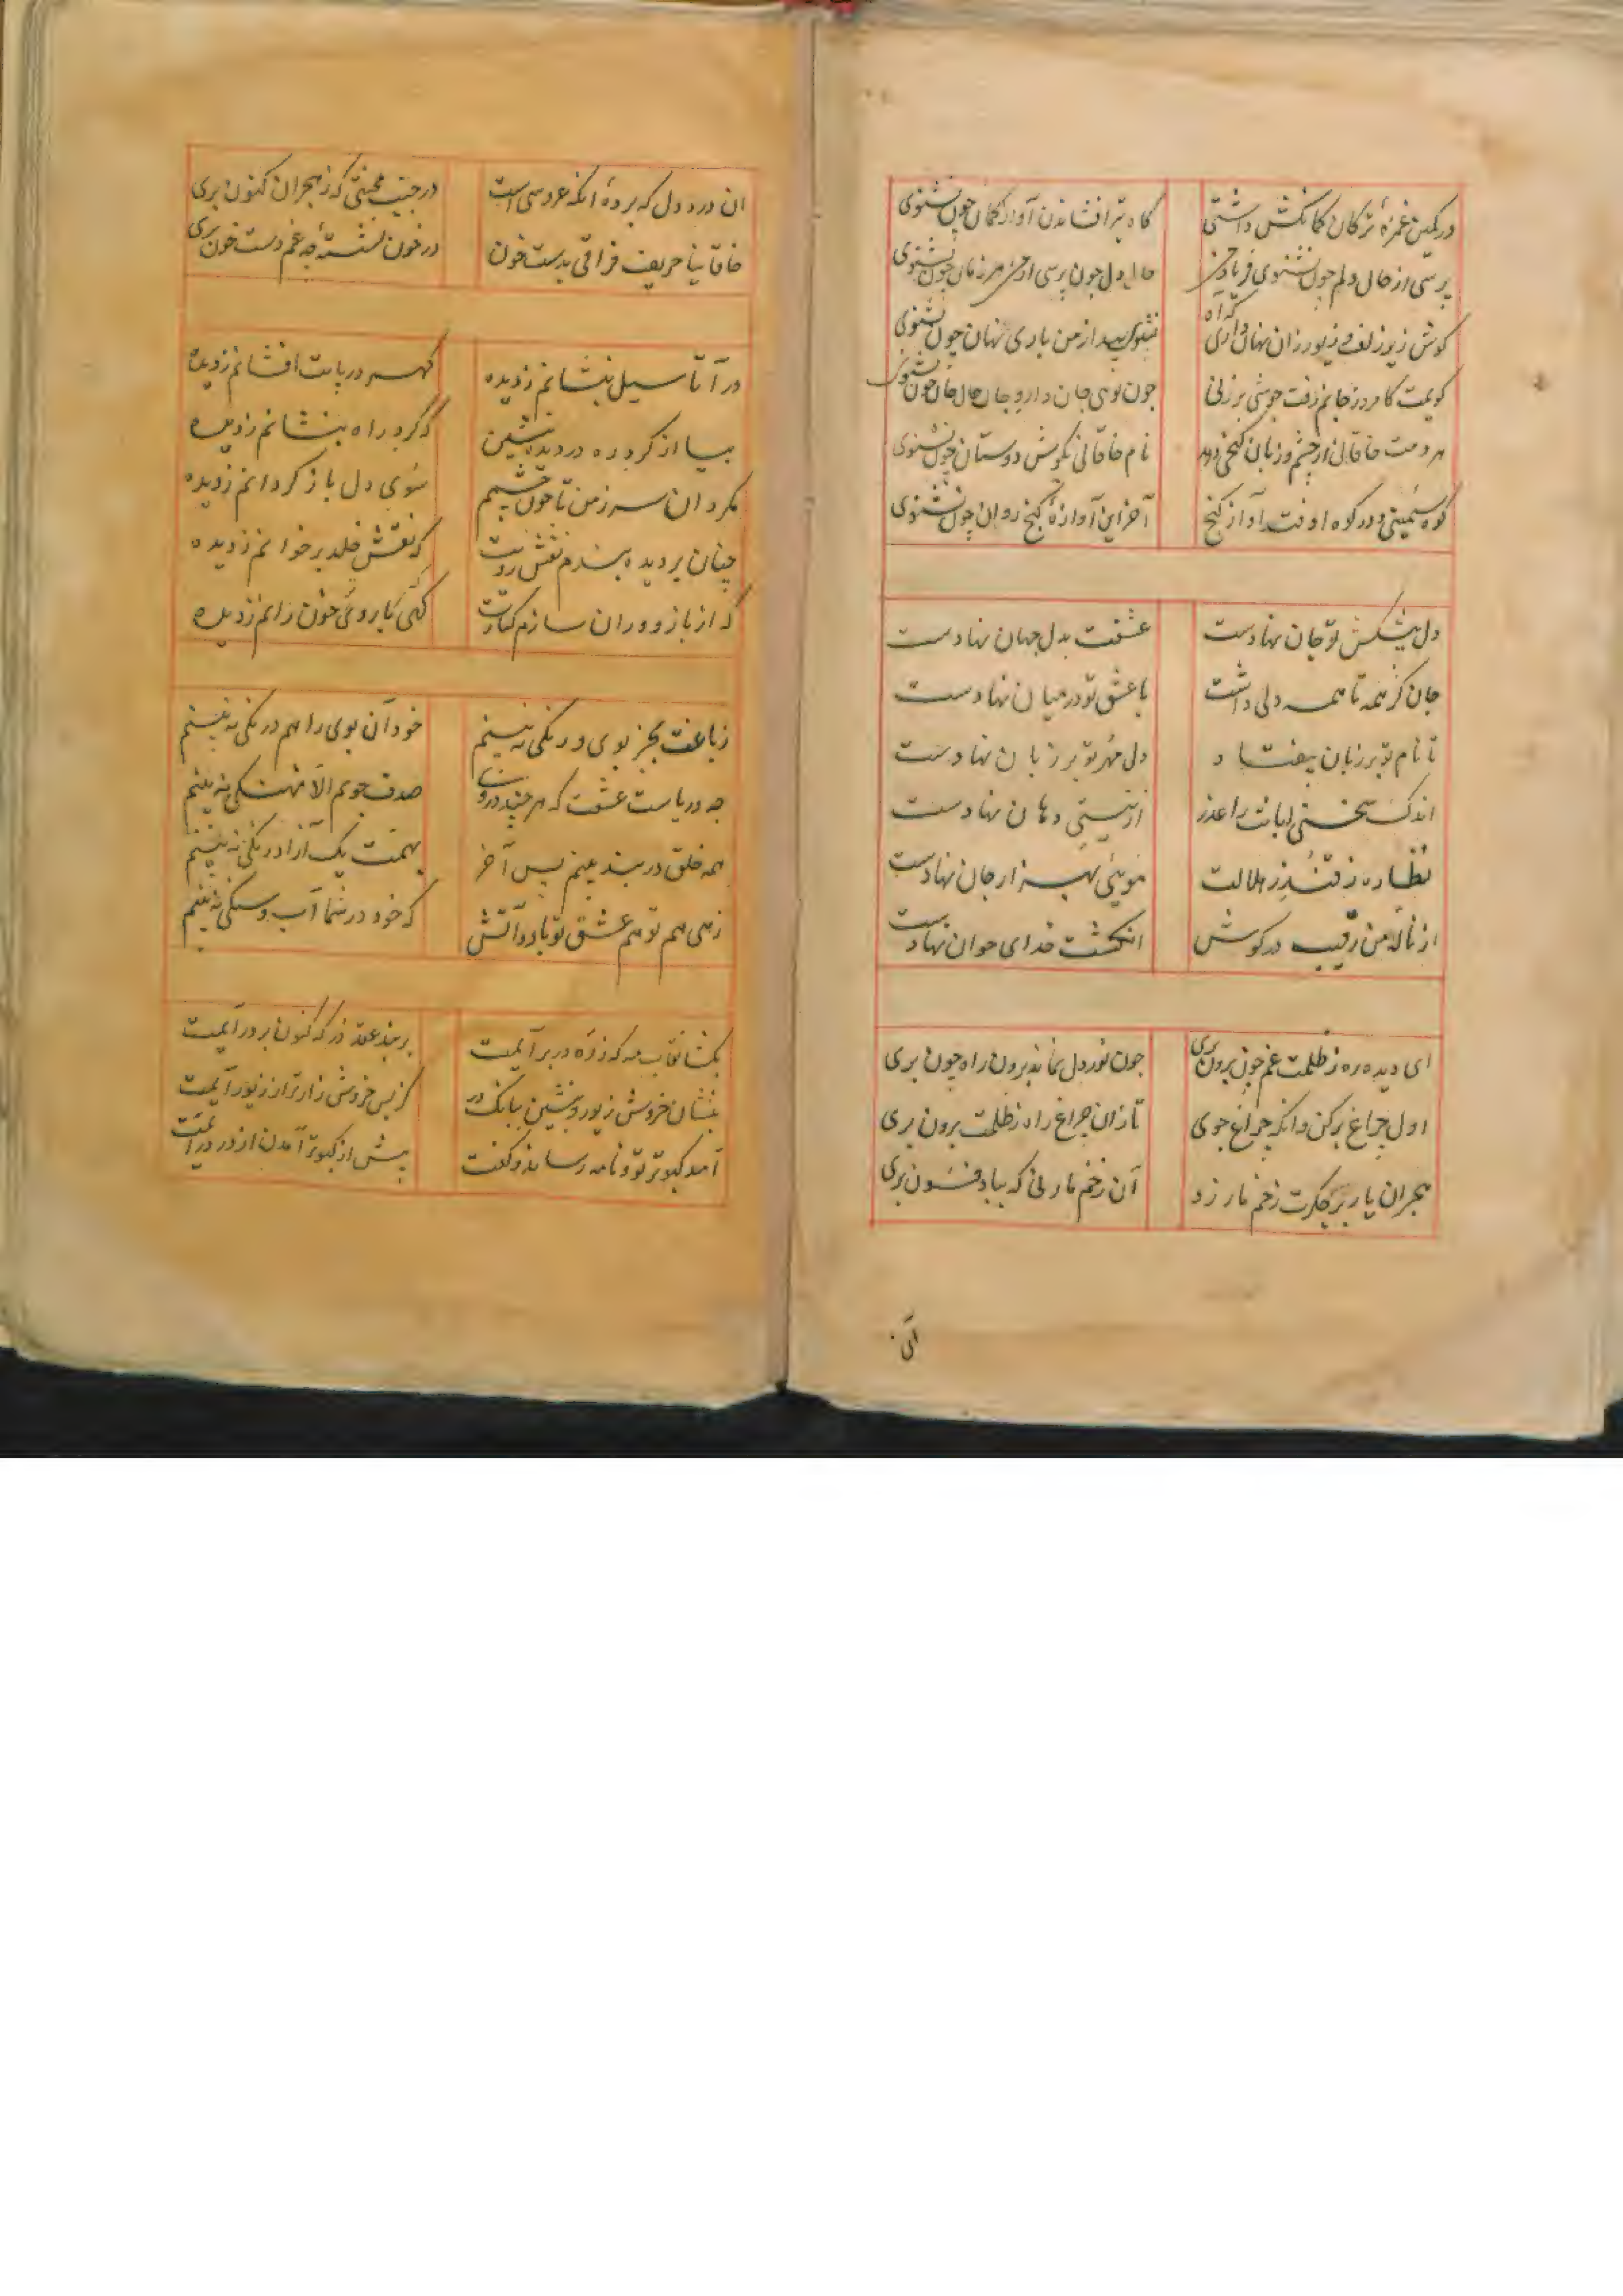 در کمین غمزهٔ ترکان کمانکش داشتی
کاه تیر افشاندن آواز کمان چون نشنوی
پرسی از حال دلم چون نشنوی فریاد من
حال دل چون پرسی از من هر زمان چون نشنوی
کوش زیر زلف و زیور زان نهان داری که آه
از من باری نهان چون نشنوی
کویمت کامروز جانم رفت
چون توی جان دارو جان حال جان چون نشنوی
هر دمت خاقانی از چشم و زبان کنجی دهد
نام خاقانی بکوش دوستان چون نشنوی
کوه سیمینی و در کوه اوفتد آواز کنج
آخر این آوازهٔ کنج روان چون نشنوی
دل پیشکش تو جان نهادست
عشقت بدل جهان نهادست
جان کز همه تا همه دلی داشت
با عشق تو در میان نهادست
تا نام تو بر زبان بیفتاد
دل مهر تو بر زبان نهادست
اندک سخنی لبانت را عذر
از نیستی دهان نهادست
نظاره ز قندز هلالت
مویی بهزار جان نهادست
از نالهٔ من رقیب در کوش
انکشت خدای خوان نهادست
ای دیده ره ز ظلمت غم چون برون بری
چون نور دل نماند برون راه چون بری
اول چراغ برکن وانکه چراغ جوی
تا زان چراغ راه ز ظلمت برون بری
هجران یار بر جکرت زخم مار زد
آن زخم مار نی که بباد فسون بری
ان درد دل که بردهٔ انکه عروسی است
در جنب محنتی که ز هجران کنون بری
خاقانیا حریف فراقی بدست خون
در خون نشستهٔ چه غم دست خون بری
درآ تا سیل بنشانم ز دیده
کهر در پایت افشانم ز دیده
بیا از کرد ره در دیده بنشین
که کرد راه بنشانم ز دیده
مکردان سر ز من تا خون چشمم
سوی دل باز کردانم ز دیده
چنان بر دیده بندم نقش رویت
که نقش خلد بر خوانم ز دیده
که از بازو وران سازم کنارت
کهی تا روی خون رانم ز دیده
ز باغت بجز بوی و رنکی نه بینم
خود آن بوی را هم درنکی نه بینم
چه دریاست عشقت که هر چند دروی
صدف جویم الا نهنکی نه بینم
همه خلق در بند بینم پس آخر
بهمت یک آزاد رنکی نه بینم
زهی هم تو هم عشق تو باد و آتش
که خود در شما آب و سنکی نه بینم
بکشا نقاب مه که ز ره در بر آیمت
بربند عقد در که کنون بر در آیمت
بنشان خروش زیور و بنشین ببانک در
کز بس خروش زارتر از زیور آیمت
آمد کبوتر تو و نامه رساند و کفت
پیش از کبوتر آمدن از در در آیمت